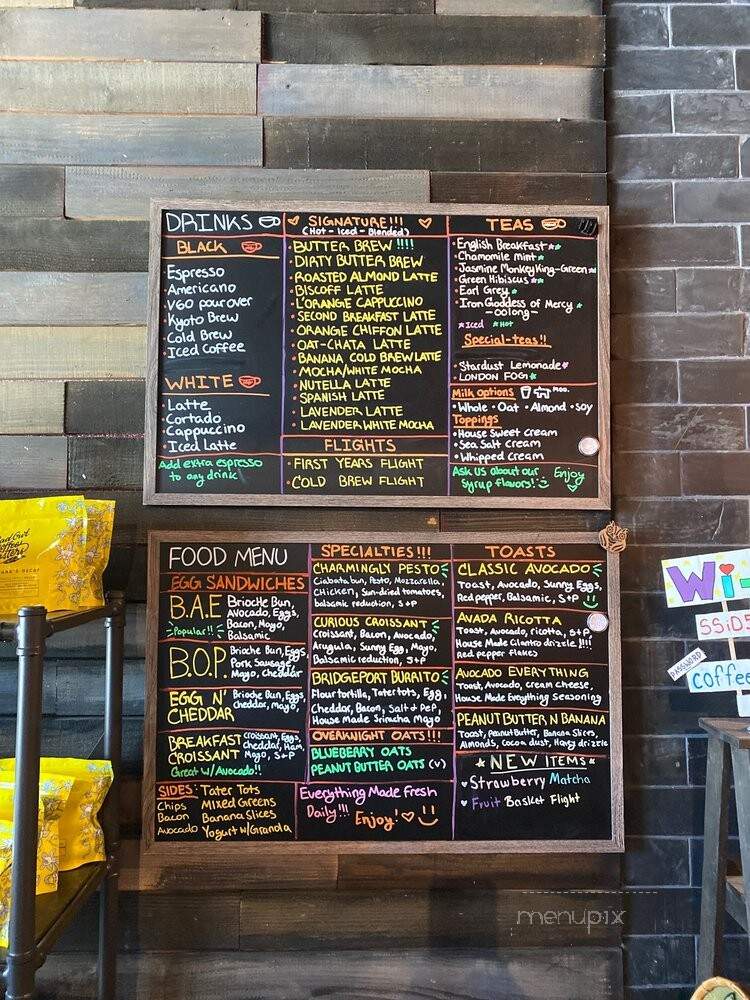 DRINKS
BLACK
Espresso
Americano
V60 pour over
Kyoto Brew
Cold Brew
Iced Coffee
WHITE
Latte
Cortado
Cappuccino
Iced Latte
Add extra espresso
to any drink
SIGNATURE!!!
(Hot - Iced - Blended)
BUTTER BREW !!!!
DIRTY BUTTER BREW
ROASTED ALMOND LATTE
BISCOFF LATTE
L'ORANGE CAPPUCCINO
SECOND BREAKFAST LATTE
ORANGE CHIFFON LATTE
OAT-CHATA LATTE
BANANA COLD BREW LATTE
MOCHA/WHITE MOCHA
NUTELLA LATTE
SPANISH LATTE
LAVENDER LATTE
LAVENDER WHITE MOCHA
FLIGHTS
FIRST YEARS FLIGHT
COLD BREW FLIGHT
TEAS
English Breakfast
Chamomile mint
Jasmine Monkey King-Green
Green Hibiscus
Earl Grey
Iron Goddess of Mercy
-oolong-
Iced Hot
Special-teas!!
Stardust Lemonade
LONDON FOG
Milk options moo.
Whole • Oat • Almond • Soy
Toppings
House Sweet Cream
Sea Salt Cream
Whipped Cream
Ask us about our
Syrup flavors!
Enjoy
FOOD MENU
EGG SANDWICHES
B.A.E
Popular!!
Brioche Bun,
Avocado, Eggs,
Bacon, Mayo,
Balsamic
B.O.P.
Brioche Bun, Eggs,
Pork Sausage,
Mayo, Cheddar
EGG N'
CHEDDAR
Brioche Bun, Eggs,
Cheddar, Mayo,
BREAKFAST
CROISSANT
Croissant, Eggs,
Cheddar, Ham,
Mayo, S+P
Great w/Avocado!!
SIDES: Tater Tots
Chips Mixed Greens
Bacon Banana Slices
Avocado Yogurt w/Granola
SPECIALTIES!!!
CHARMINGLY PESTO
Ciabatta bun, Pesto, Mozzarella,
Chicken, Sun-dried tomatoes,
balsamic reduction, S+P
CURIOUS CROISSANT
Croissant, Bacon, Avocado,
Arugula, Sunny Egg, Mayo,
Balsamic reduction, S+P
BRIDGEPORT BURRITO
Flour tortilla, Tater tots, Egg,
Cheddar, Bacon, Salt & Pep,
House made Sriracha Mayo
OVERNIGHT OATS!!!
BLUEBERRY OATS
PEANUT BUTTER OATS (V)
Everything Made Fresh
Daily!!!
Enjoy!
TOASTS
CLASSIC AVOCADO
Toast, Avocado, Sunny Eggs,
Red pepper, Balsamic, S+P
AVADA RICOTTA
Toast, Avocado, ricotta, S+P
House Made Cilantro drizzle!!!!
Red pepper flakes
AVOCADO EVERYTHING
Toast, Avocado, cream cheese,
House Made Everything Seasoning
PEANUT BUTTER N BANANA
Toast, Peanut Butter, Banana Slices,
Almonds, Cocoa dust, Honey drizzle
NEW ITEMS
Strawberry Matcha
Fruit Basket Flight
Wi-
SSiD
PASSWORD
coffee
menupix